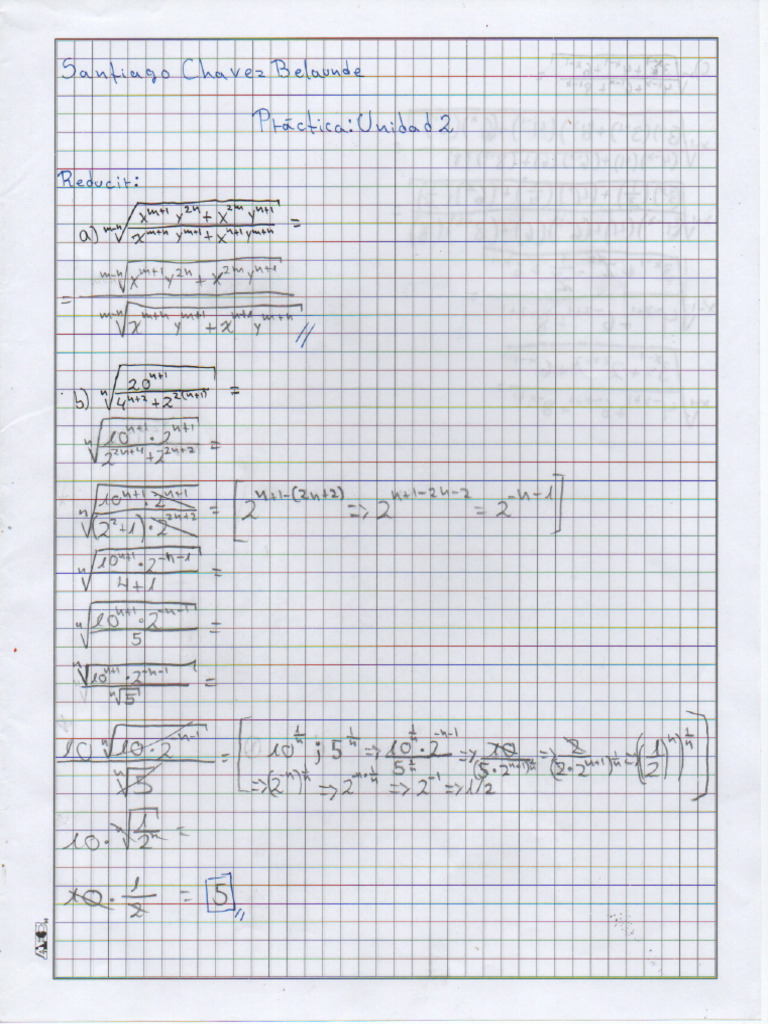 Santiago Chavez Belaunde
Práctica: Unidad 2
Reducir:
a) ᵐ⁻ⁿ√((x^(m+1) y^(2n) + x^(2m) y^(n+1)) / (x^(m+n) y^(m+1) + x^(n+1) y^(m+n))) =
= ᵐ⁻ⁿ√(x^(m+1) y^(2n) + x^(2m) y^(n+1)) / ᵐ⁻ⁿ√(x^(m+n) y^(m+1) + x^(n+1) y^(m+n)) //
b) ⁿ√(20^(n+1) / (4^(n+2) + 2^(2(n+1)))) =
ⁿ√((10^(n+1) · 2^(n+1)) / (2^(2n+4) + 2^(2n+2))) =
ⁿ√((10^(n+1) · 2^(n+1)) / ((2^2+1) · 2^(2n+2))) = [2^(n+1-(2n+2)) => 2^(n+1-2n-2) = 2^(-n-1)]
ⁿ√((10^(n+1) · 2^(-n-1)) / (4+1)) =
ⁿ√((10^(n+1) · 2^(-n-1)) / 5) =
ⁿ√(10^(n+1) · 2^(-n-1)) / ⁿ√5 =
10 ⁿ√(10 · 2^(-n-1)) / ⁿ√5 = [10^(1/n) ; 5^(1/n) => (10^(1/n) · 2^(-n-1)) / 5^(1/n) => 10 / (5 · 2^(n+1))^(1/n) => 2 / (2 · 2^(n+1))^(1/n) => ((1/2)^n)^(1/n)
=> (2^(-n))^(1/n) => 2^(-n · 1/n) => 2^(-1) => 1/2]
10 · ⁿ√(1/2^n) =
10 · 1/2 = 5 //